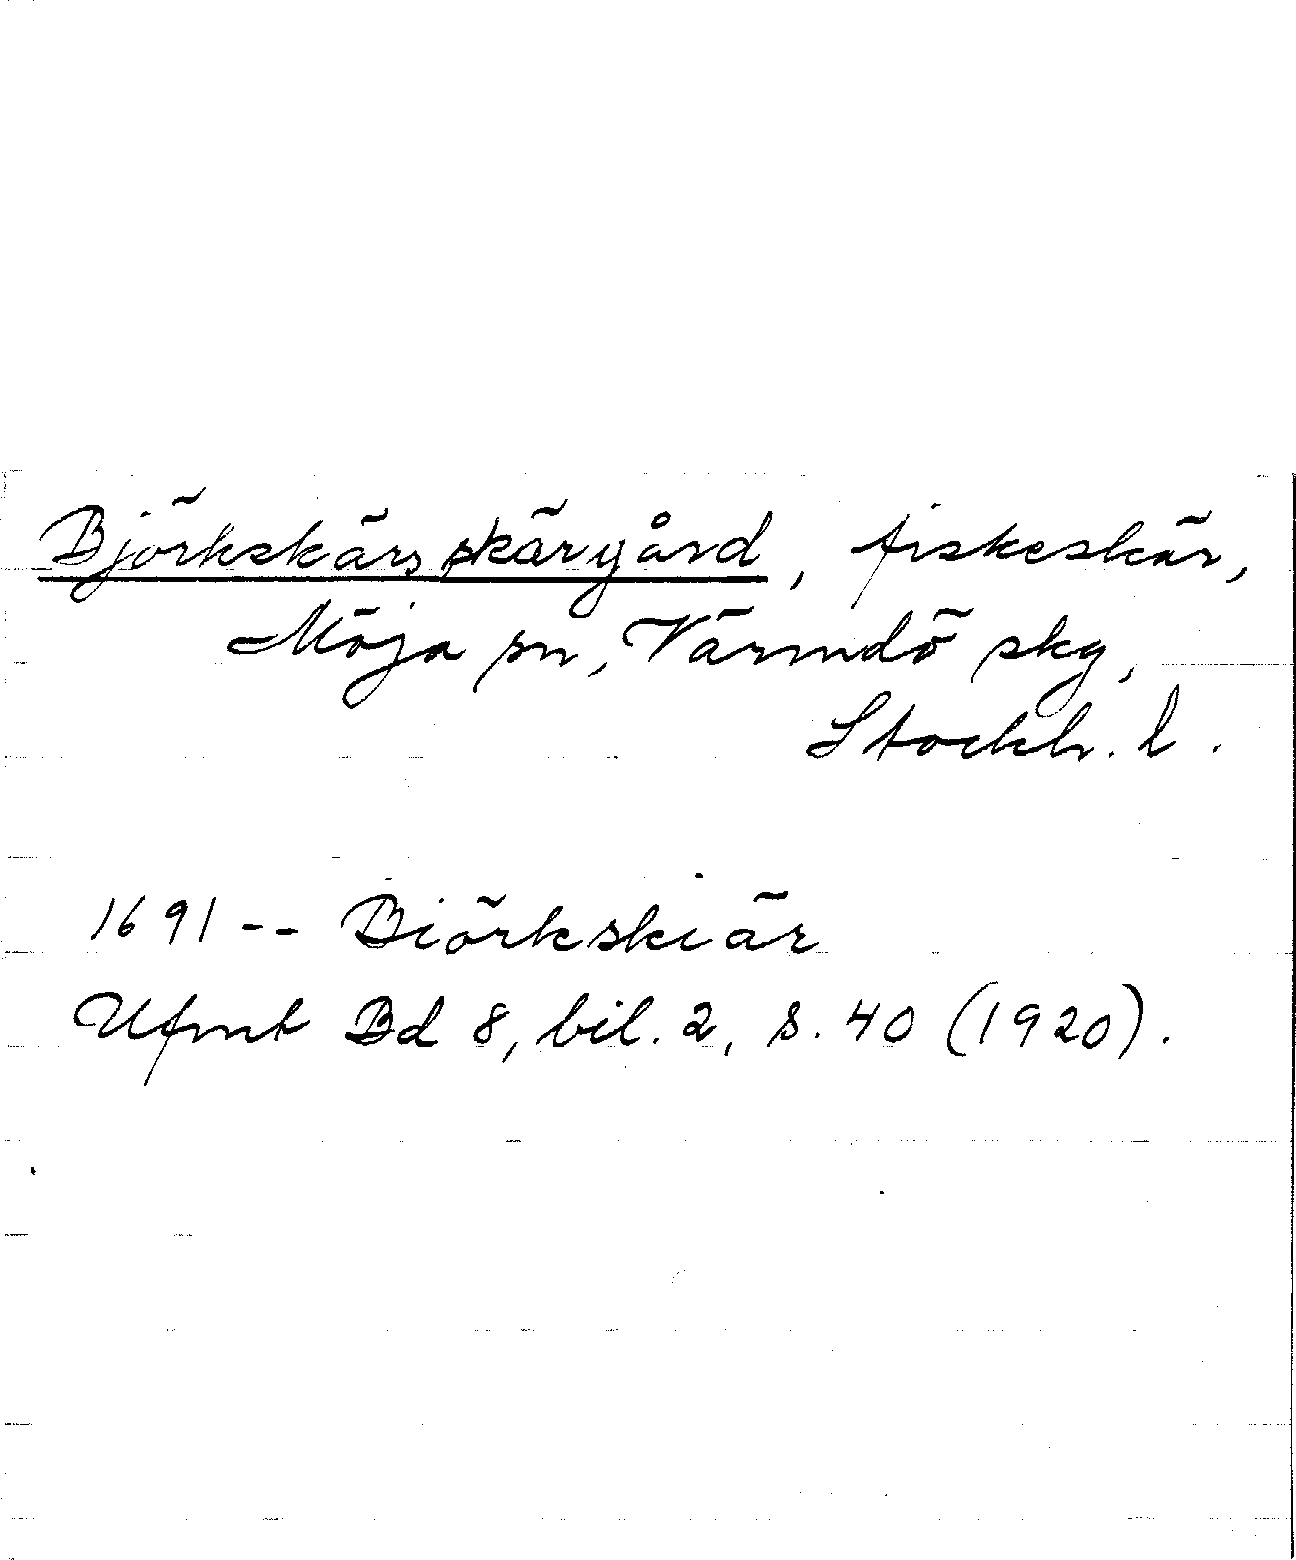 Björkskärs skärgård, fiskeskär,
Möja sn, Värmdö skg,
Stockh. l.
1691 -- Biörkskiär
Ufmt Bd 8, bil. 2, s. 40 (1920).